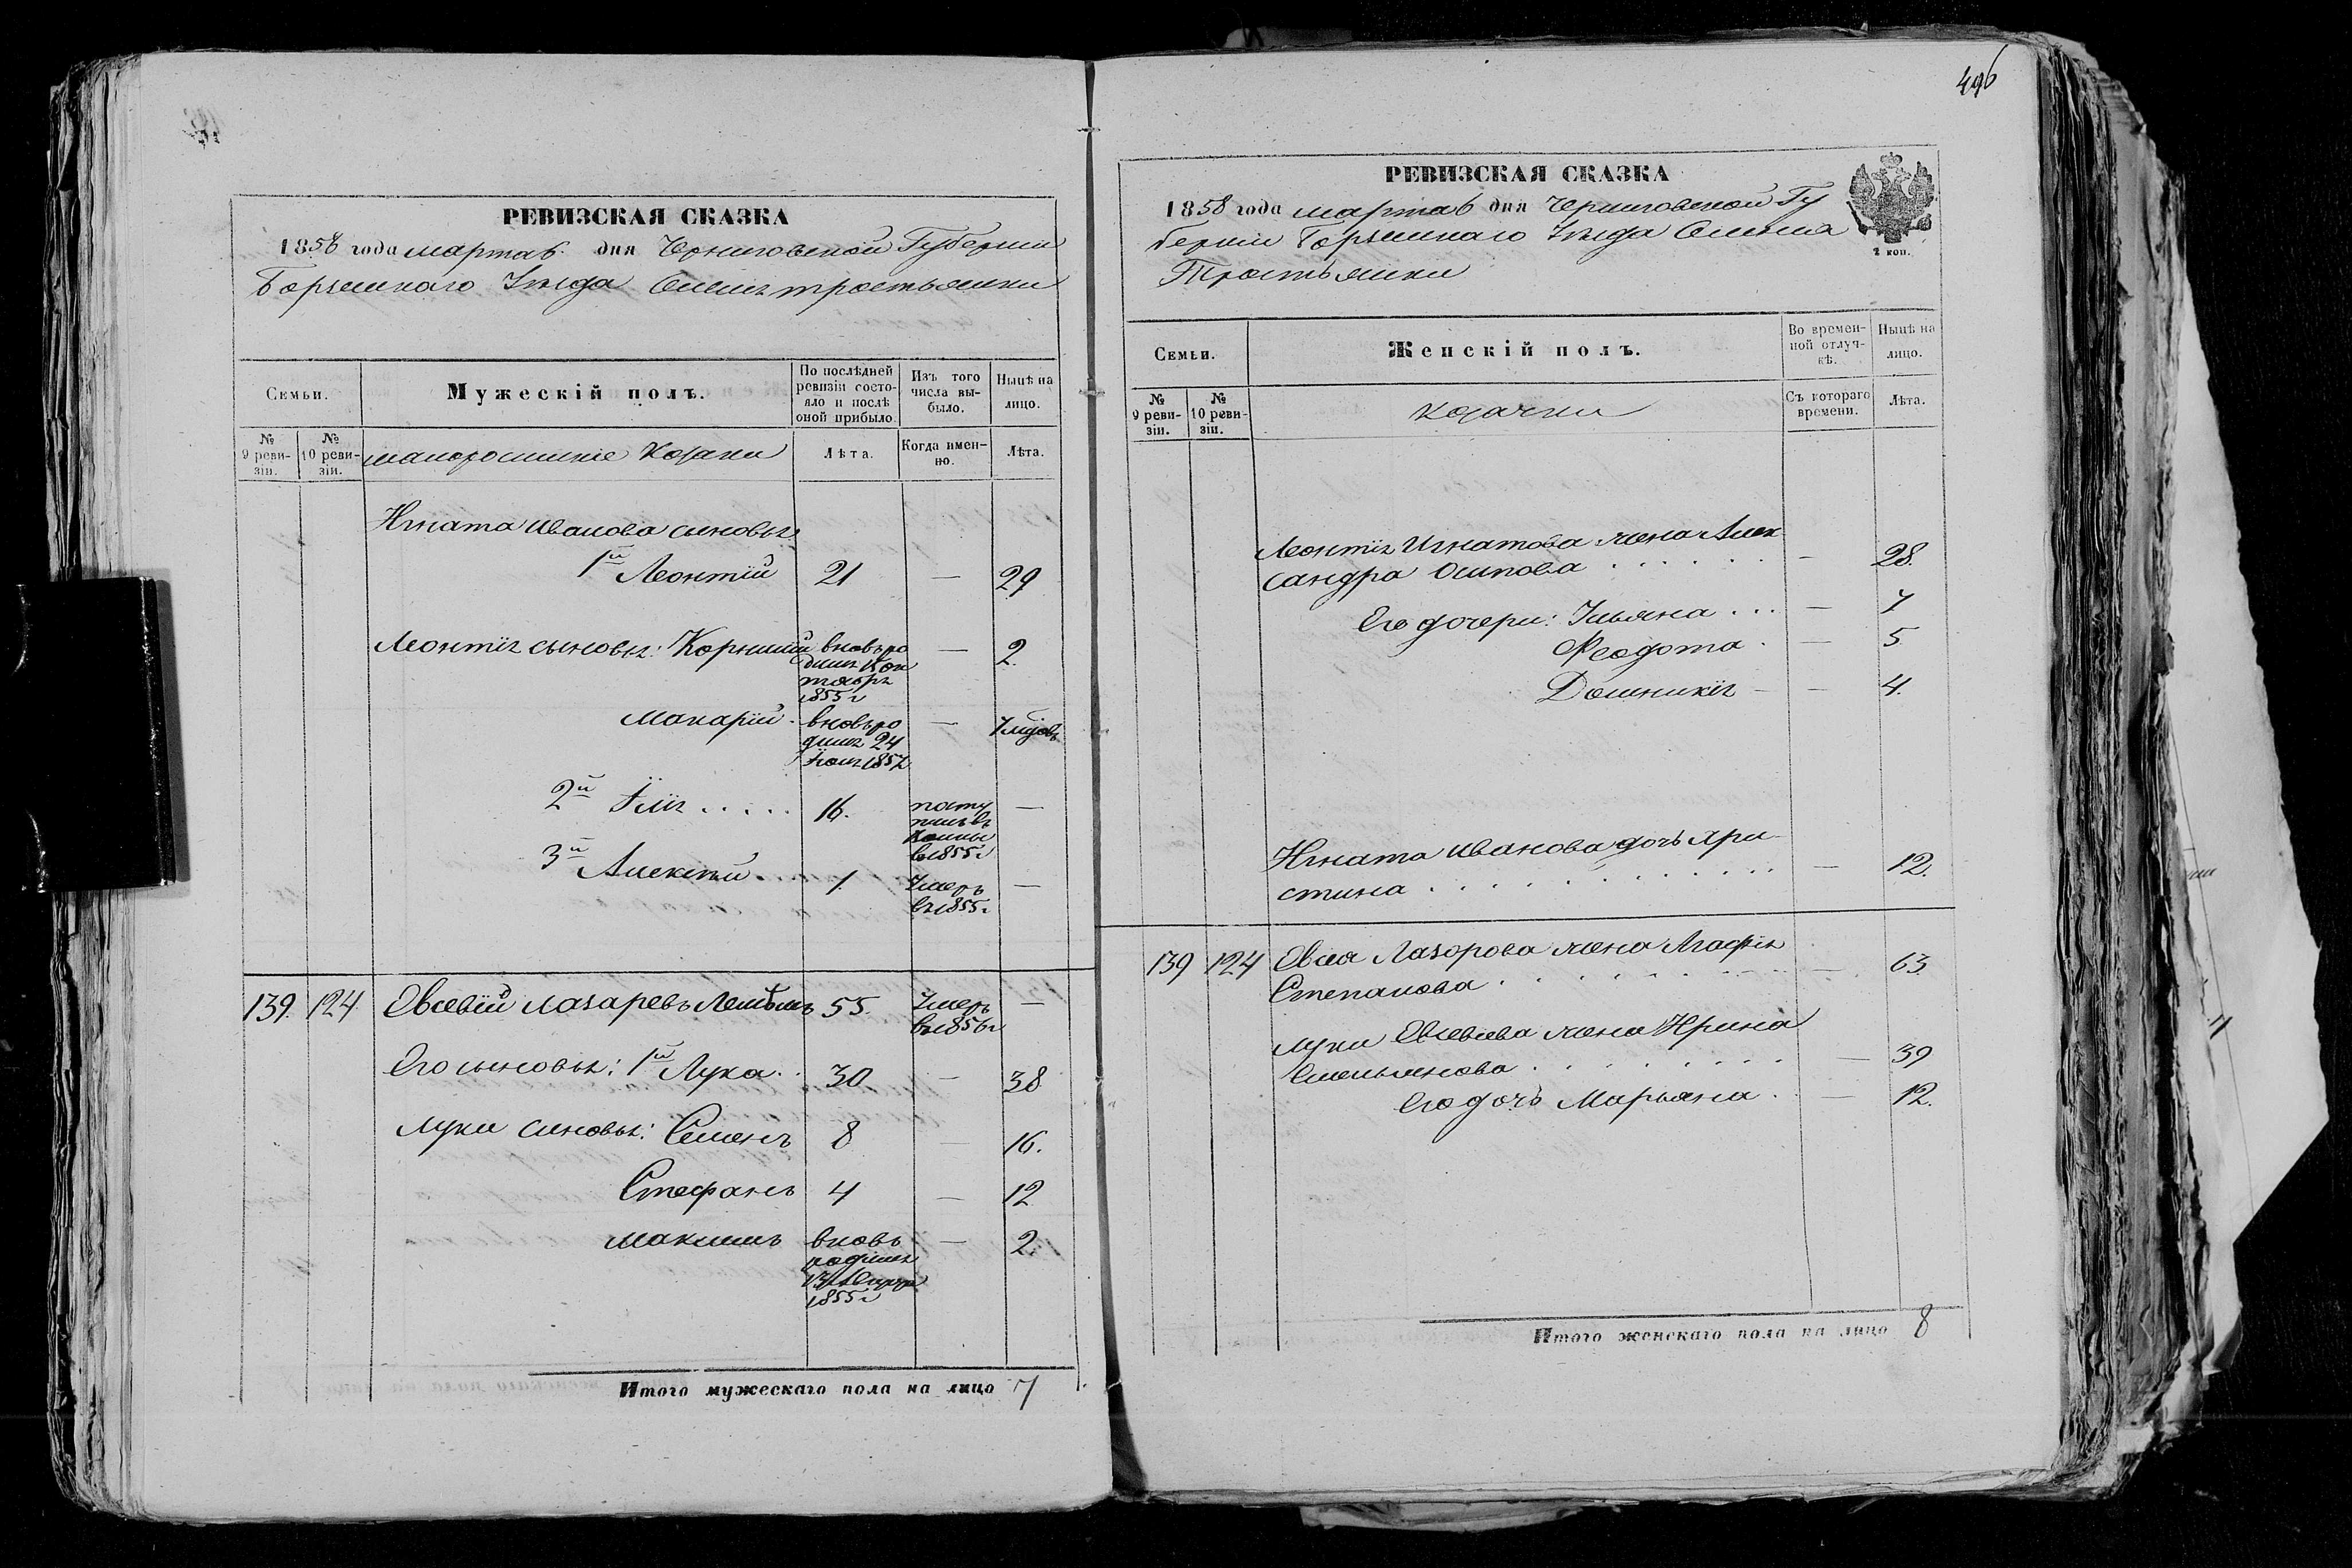 РЕВИЗСКАЯ СКАЗКА
1858 года марта 6 дня Черниговской Губернии
Борзенскаго Уезда Села Тростянки
Семьи.
Мужескій полъ.
По послѣдней ревизіи состояло и послѣ оной прибыло.
Изъ того числа выбыло.
Нынѣ на лицо.
№ 9 ревизіи.
№ 10 ревизіи.
малоросийскіе Козаки
Лѣта.
Когда именно.
Лѣта.
Игната Иванова сыновья
1й Леонтій 21 — 29
Леонтія сыновья: Корнилій вновь ро — 2.
тоября
1855 г
Макарій вновь ро — 7 мѣсяцовъ
дился 24
1857
2й Илія 16. посту —
пилъ въ
в 1855 г
3й Алексѣй 1. Умеръ —
въ 1855 г
139. 124 Евсевій Лазаревъ 55. Умеръ —
въ 1856 г
Его сыновья: 1й Лука 30 — 38
Луки сыновья: Семенъ 8 — 16.
Стефанъ 4 — 12
Максимъ вновь — 2.
родился
1855 г
Итого мужескаго пола на лицо 7
496
РЕВИЗСКАЯ СКАЗКА
1858 года марта 6 дня Черниговской Гу
берніи Борзенскаго Уезда Селенія
Тростьянки
2 коп.
Семьи.
Женскій полъ.
Во временной отлучкѣ.
Нынѣ на лицо.
№ 9 ревизіи.
№ 10 ревизіи.
козачки
Съ котораго времени.
Лѣта.
Леонтія Игнатова жена Алек
сандра Осипова — 28.
Его дочери: Ульяна — 7
Феодота — 5
Домникія — 4.
Игната Иванова дочь Хри
стина — 12.
139 124 Евсея Лазорова жена Агафія
Степанова — 63
Луки Евсевіева жена Ирина
Емельянова — 39
Его дочь Марьяна — 12.
Итого женскаго пола на лицо 8